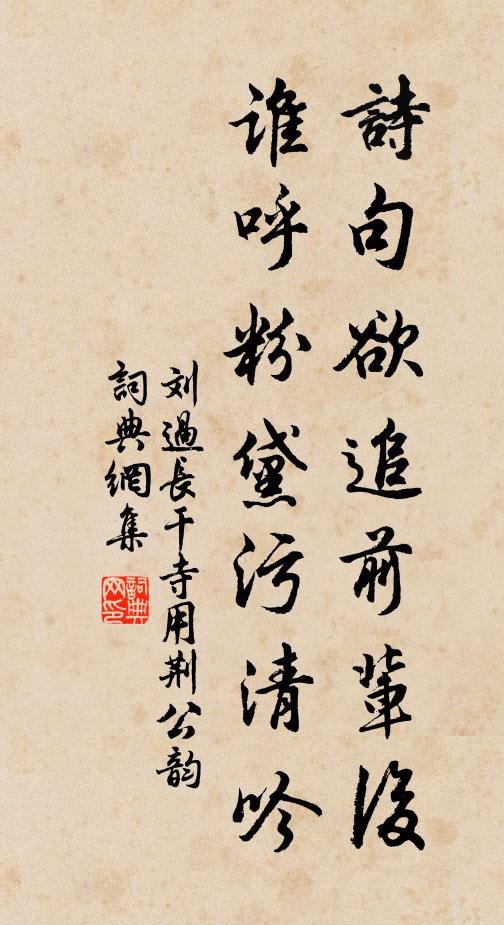 詩句欲追前輩後
誰呼粉黛污清吟
刘過長干寺用荆公韵
詞典網集
詞典
网印